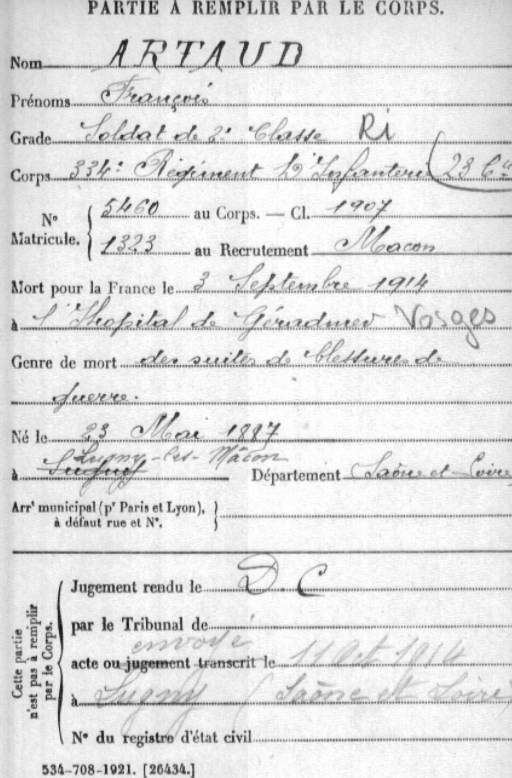 PARTIE À REMPLIR PAR LE CORPS.
Nom ARTAUD
Prénoms François
Grade Soldat de 2e Classe RI
Corps 334e Régiment d'Infanterie (23 Cie
No Matricule. 5460 au Corps. — Cl. 1907
1323 au Recrutement Macon
Mort pour la France le 3 Septembre 1914
à l'hopital de Gérardmer Vosges
Genre de mort des suites de blessures de
guerre.
Né le 23 Mai 1887
Lugny-les-Mâcon
à Lugny Département Saône et Loire
Arrt municipal (pr Paris et Lyon),
à défaut rue et No.
Cette partie
n'est pas à remplir
par le Corps.
Jugement rendu le D.C
par le Tribunal de
envoyé
acte ou jugement transcrit le 11 Oct 1914
à Lugny (Saône et Loire)
No du registre d'état civil
534-708-1921. [26434.]